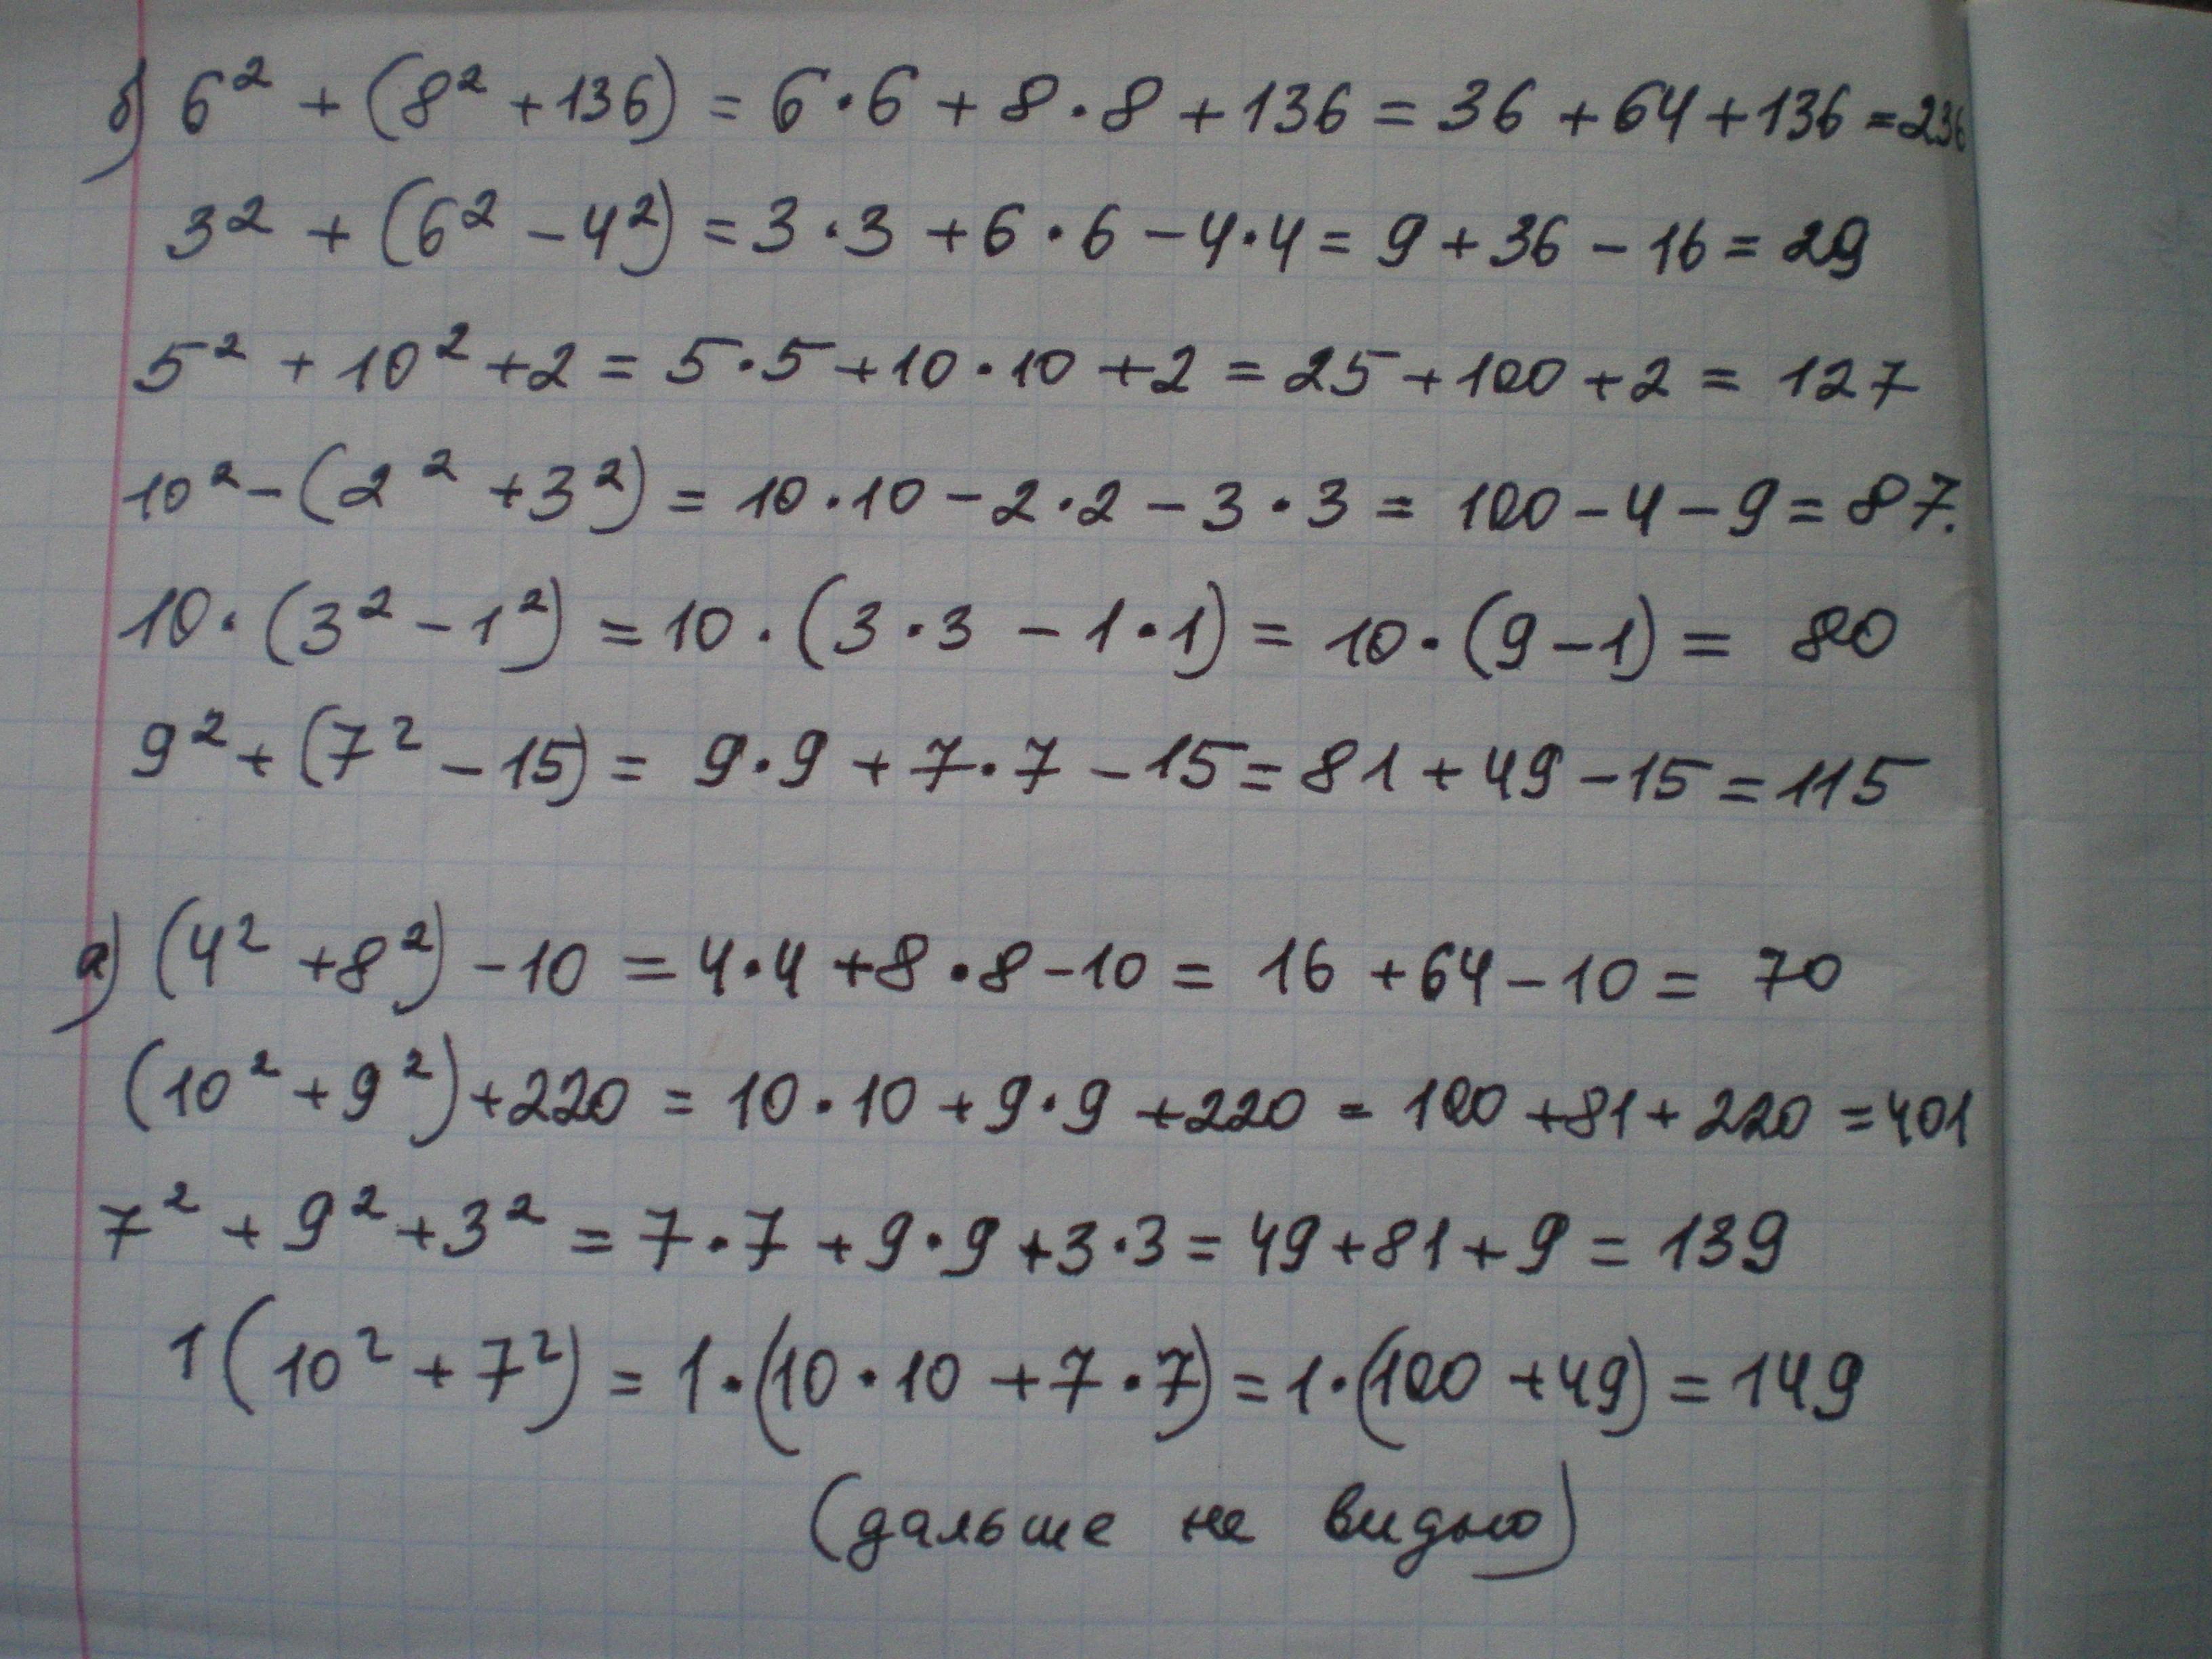 б) 6² + (8² + 136) = 6·6 + 8·8 + 136 = 36 + 64 + 136 = 236
3² + (6² - 4²) = 3·3 + 6·6 - 4·4 = 9 + 36 - 16 = 29
5² + 10² + 2 = 5·5 + 10·10 + 2 = 25 + 100 + 2 = 127
10² - (2² + 3²) = 10·10 - 2·2 - 3·3 = 100 - 4 - 9 = 87.
10·(3² - 1²) = 10·(3·3 - 1·1) = 10·(9 - 1) = 80
9² + (7² - 15) = 9·9 + 7·7 - 15 = 81 + 49 - 15 = 115
а) (4² + 8²) - 10 = 4·4 + 8·8 - 10 = 16 + 64 - 10 = 70
(10² + 9²) + 220 = 10·10 + 9·9 + 220 = 100 + 81 + 220 = 401
7² + 9² + 3² = 7·7 + 9·9 + 3·3 = 49 + 81 + 9 = 139
1(10² + 7²) = 1·(10·10 + 7·7) = 1·(100 + 49) = 149
(дальше не видно)